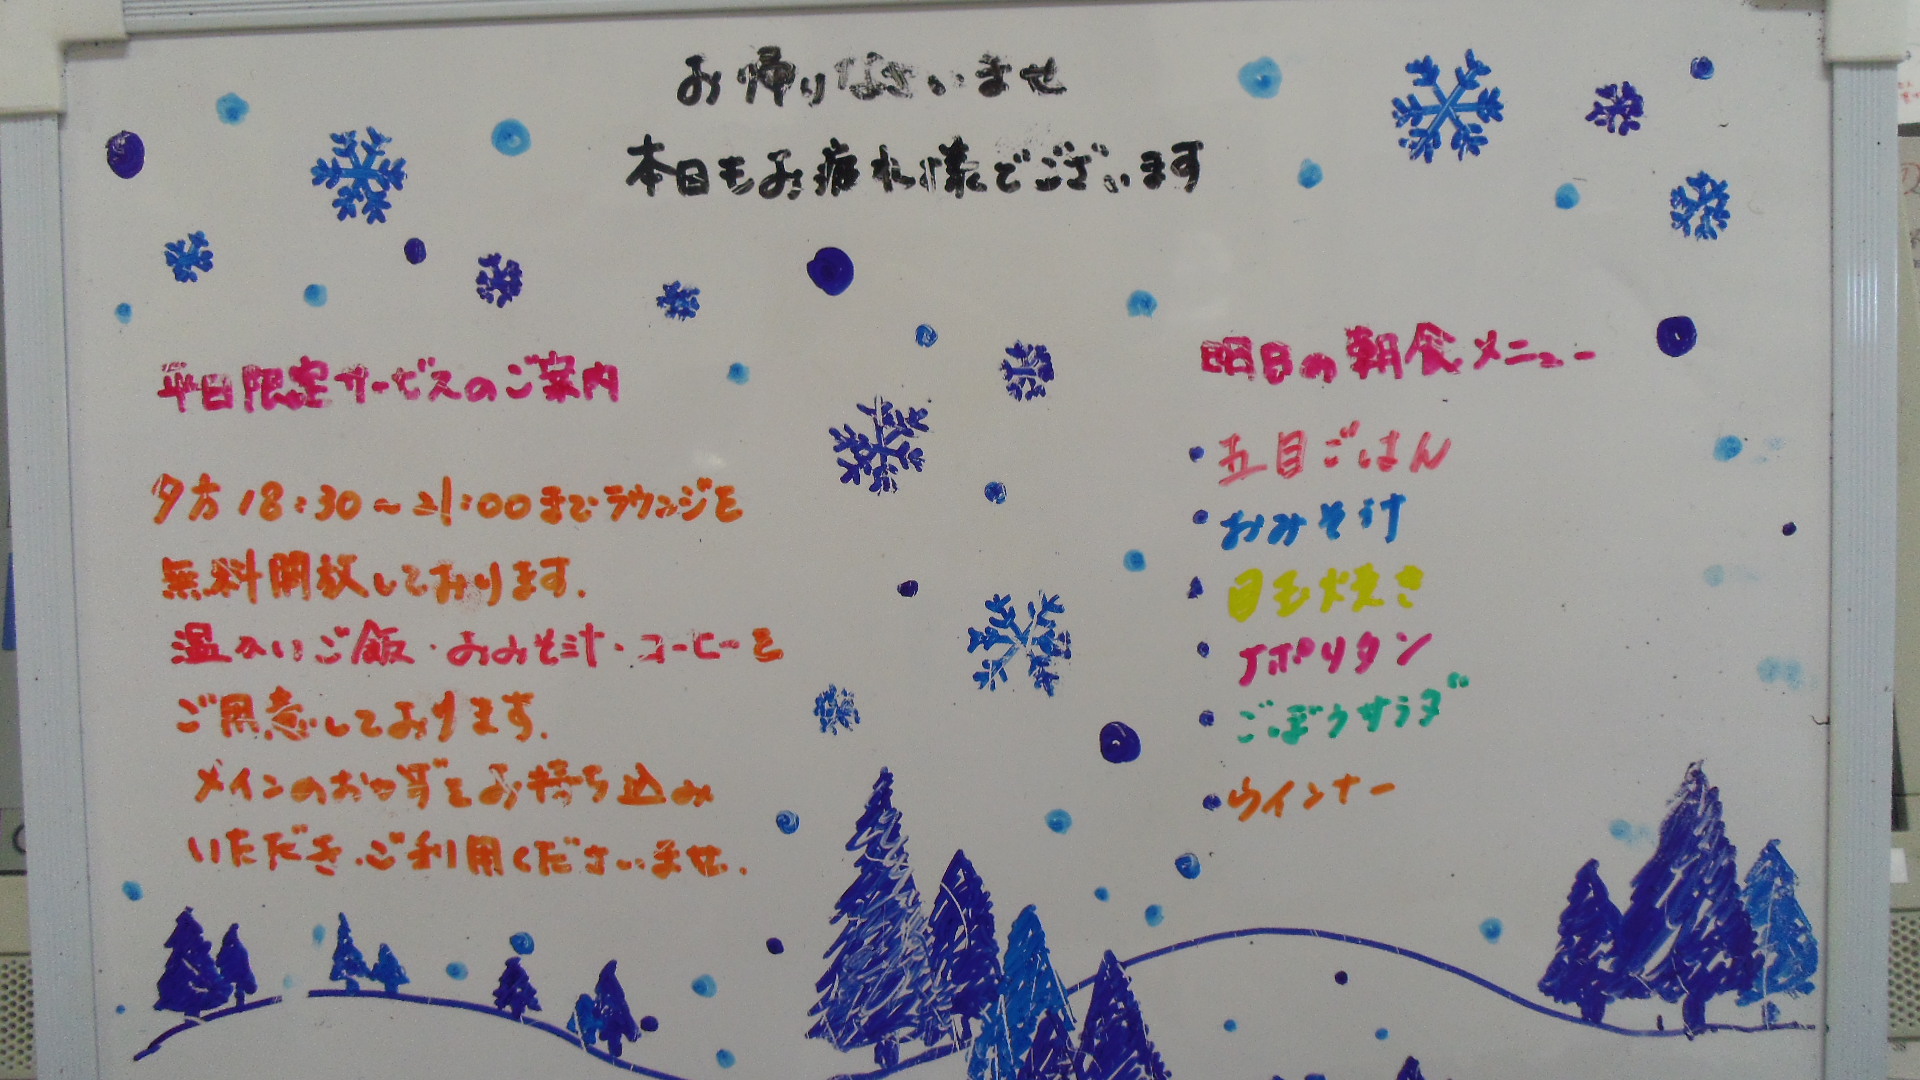 お帰りなさいませ
本日もお疲れ様でございます
平日限定サービスのご案内
夕方18:30~21:00までラウンジを
無料開放しております.
温かいご飯・おみそ汁・コーヒーを
ご用意しております.
メインのおかずをお持ち込み
いただき、ご利用くださいませ.
明日の朝食メニュー
・五目ごはん
・おみそ汁
・目玉焼き
・ナポリタン
・ごぼうサラダ
・ウインナー